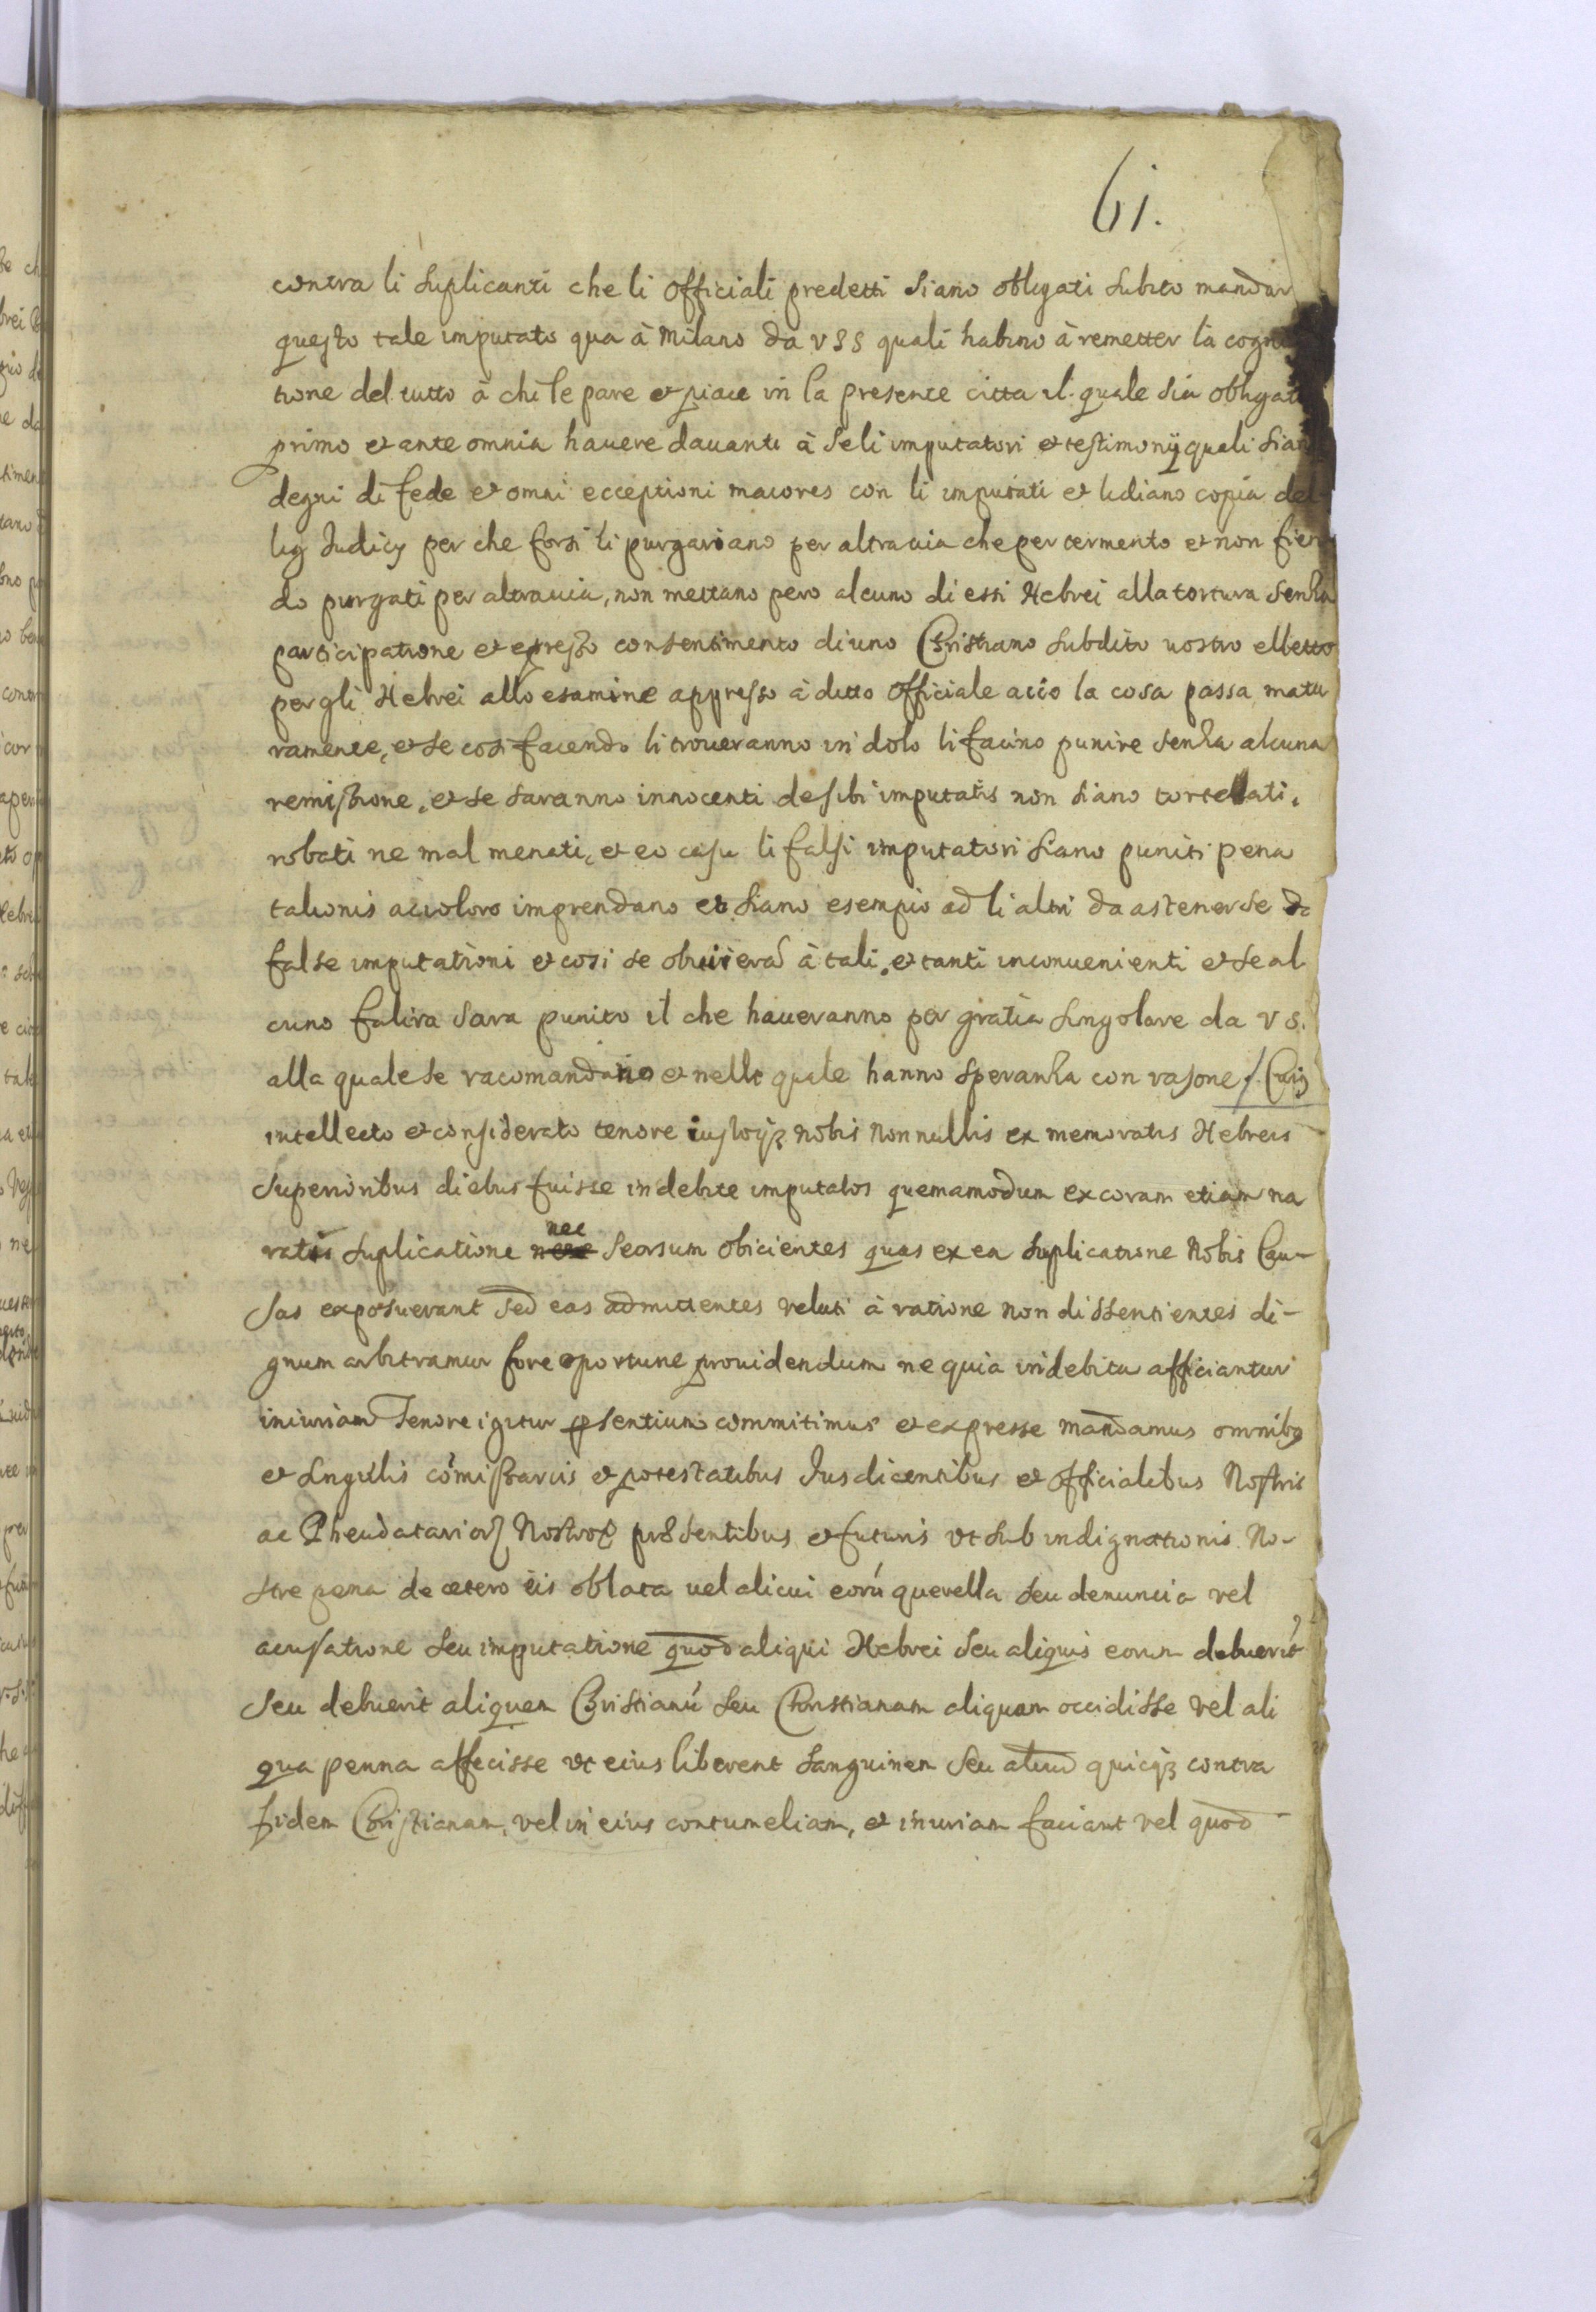 61.
contra li suplicanti che li officiali predetti siano obligati subito mandar
questo tale imputato qua à Milano da VSS quali habino à remetter la cogn
tione del tutto à chi le pare et piace in la presente citta il quale sia obligat
primo et ante omnia hauere dauanti à se li imputatori et testimonij quali sian
degni di fede et omni ecceptioni maiores con li imputati et li diano copia del
li Iudicij per che forsi li purgariano per altra uia che per tormento et non fien
do purgati per altra uia, non mettano pero alcuno di essi Hebrei alla tortura senza
participatione et expresso consentimento di uno Christiano subdito uostro elletto
per gli Hebrei allo esamine appresso à ditto officiale acio la cosa passa matu
ramente, et se cosi facendo li troueranno in dolo li facino punire senza alcuna
remissione, et se saranno innocenti de sibi imputatis non siano tortellati,
robati ne mal menati, et eo casu li falsi imputatori siano puniti pena
talionis acio loro imprendano et siano esempio ad li altri da astenerse da
false imputationi et cosi se obuierà à tali, et tanti inconuenienti et se al
cuno falira sara punito il che haueranno per gratia singolare da VS.
alla quale se racomandano et nelle quale hanno speranza con rasone /. Cuis
intellecto et considerato tenore iustoqȝ nobis nonnullis ex memoratis Hebreis
superioribus diebus fuisse indebite imputatos quemamodum ex coram etiam na
ratis suplicatione nec seorsum obicientes quas ex ea suplicatione Nobis Cau-
sas exposuerant sed eas admittentes veluti à ratione non dissentientes di-
gnum arbitramur fore oportune prouidendum ne quia indebitu afficiantur
iniuriam Tenore igitur psentium commitimus et expresse mandamus omnibꝯ
et singulis cómissariis et potestatibus Iusdicentibus et officialibus Nostris
ac Pheudatarioꝝ Nostroꝝ presentibus et futuris vt sub indignationis No-
stre pena de cetero iis oblata uel alicui eorú querella seu denuncia vel
acusatione seu imputatione quod aliqui Hebrei seu aliquis eorum debuerít
seu debuerit aliquem Christianú seu Christianam aliquam occidisse vel ali
qua penna affecisse vt eius liberent sanguinem seu aliud quicqȝ contra
fidem Christianam, vel in eius contumeliam, et iniuriam faciant vel quod